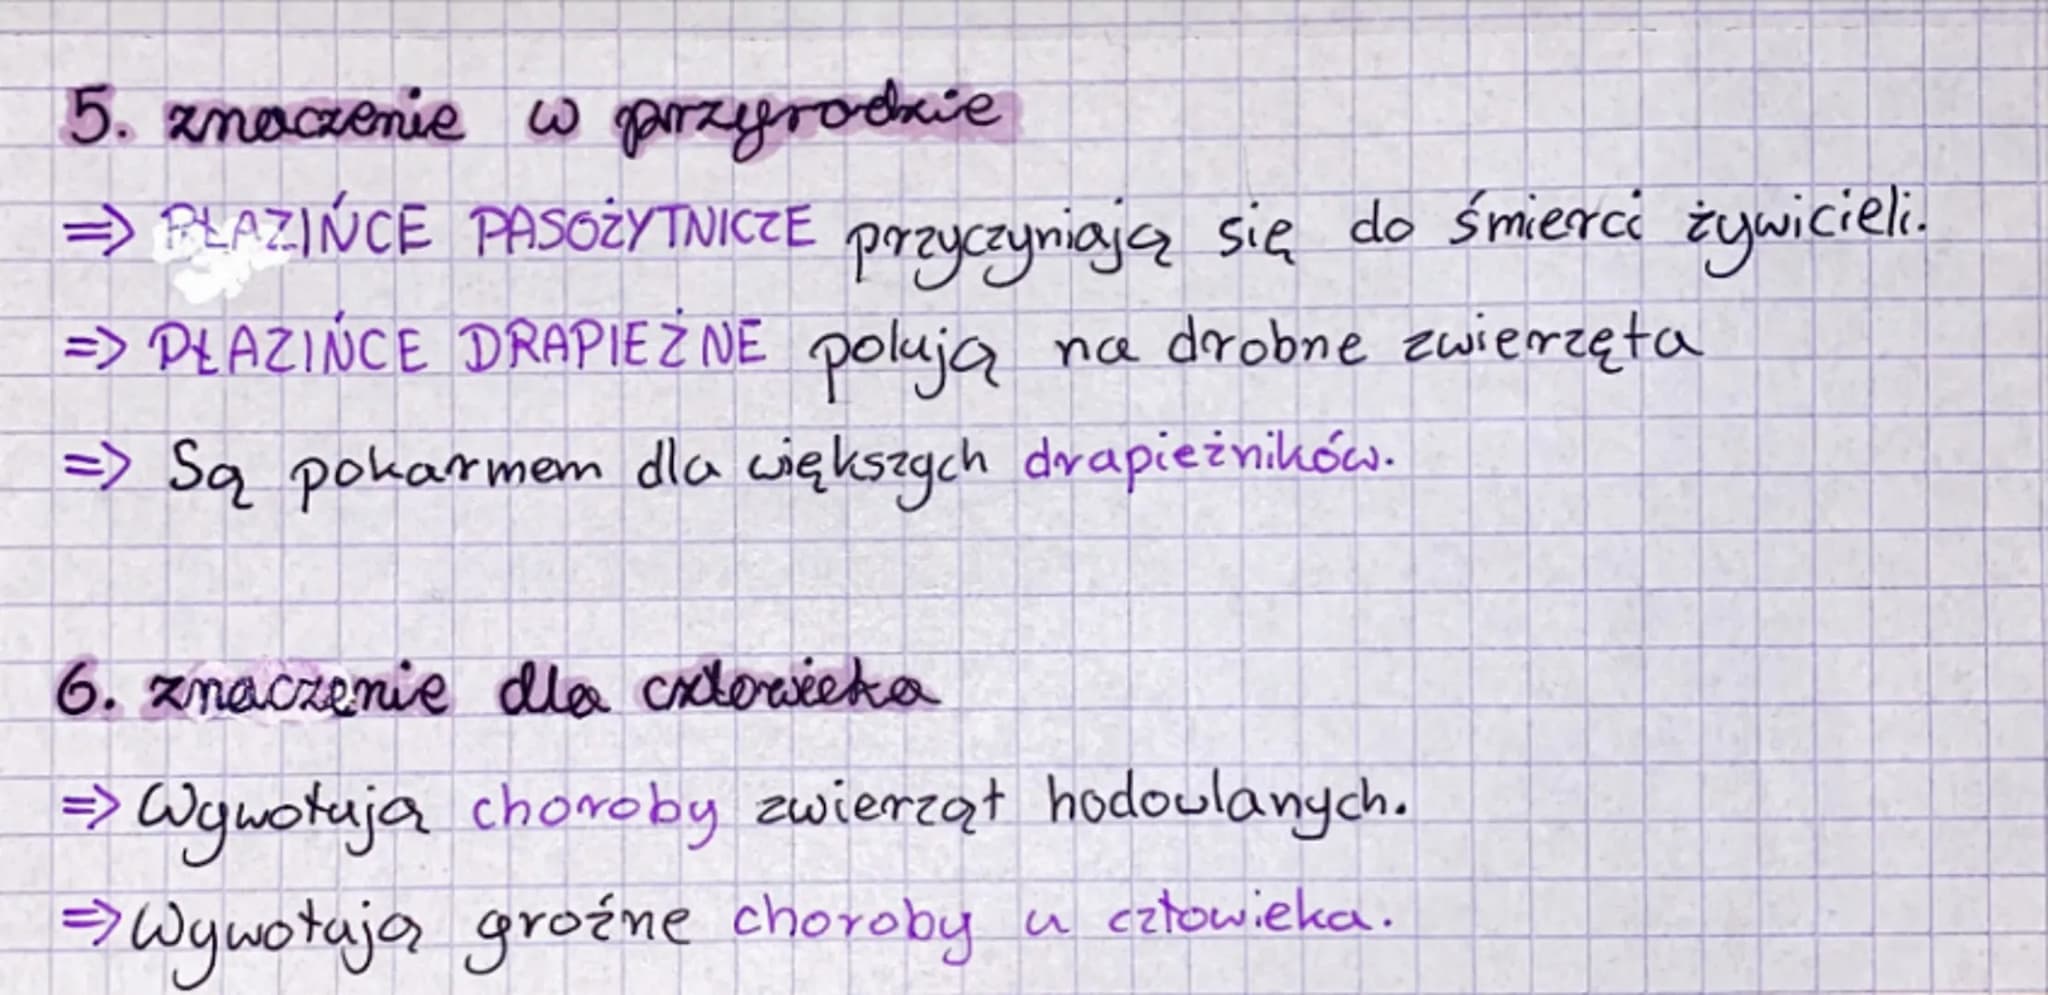 5. znaczenie w przyrodzie
=> PŁAZIŃCE PASOŻYTNICZE przyczyniają się do śmierci żywicieli.
=> PŁAZIŃCE DRAPIEŻNE polują na drobne zwierzęta
=> Są pokarmem dla większych drapieżników.
6. znaczenie dla człowieka
=> Wywołują choroby zwierząt hodowlanych.
=> Wywołują groźne choroby u człowieka.